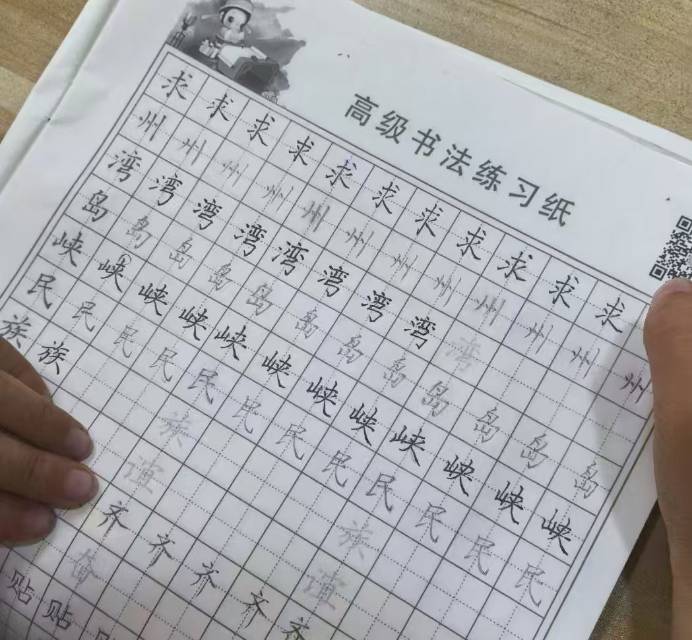 高级书法练习纸
求求求求求求求求求求求
州州州州州州州州州州州州
湾湾湾湾湾湾湾湾湾
岛岛岛岛岛岛岛岛岛岛岛岛
峡峡峡峡峡峡峡峡峡峡峡峡
民民民民民民民民民民民民
族族族族
谊谊
齐齐齐齐齐
贴贴